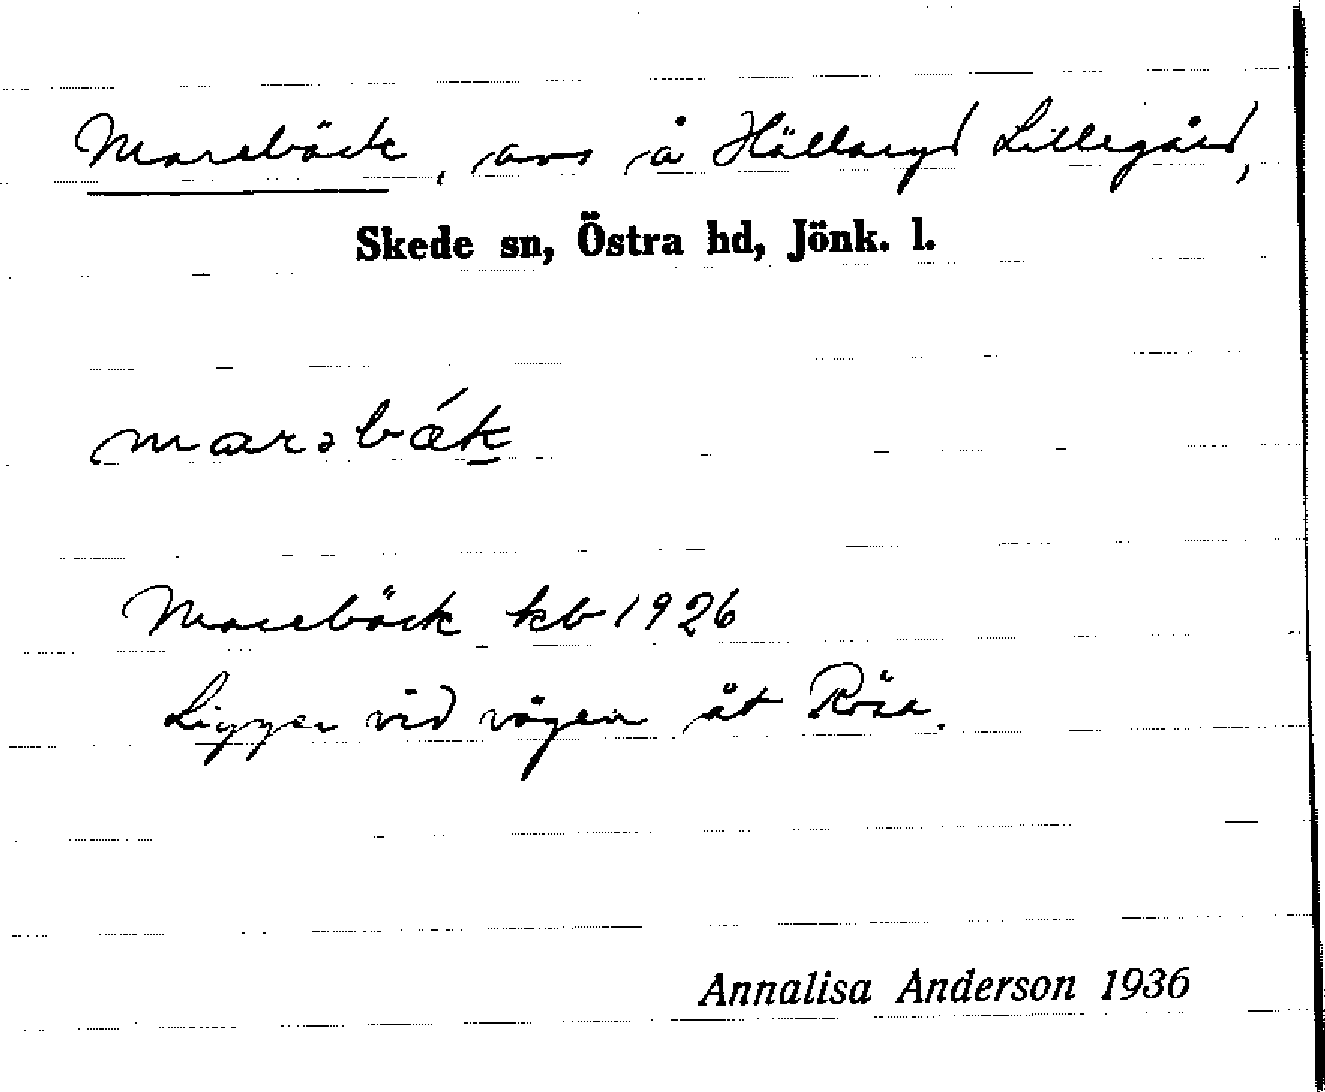 Marebäck, avs å Hällaryd Lillegård,
Skede sn, Östra hd, Jönk. l.
marəbä́k
Marebäck kb 1926
Ligger vid vägen åt Rösa.
Annalisa Anderson 1936